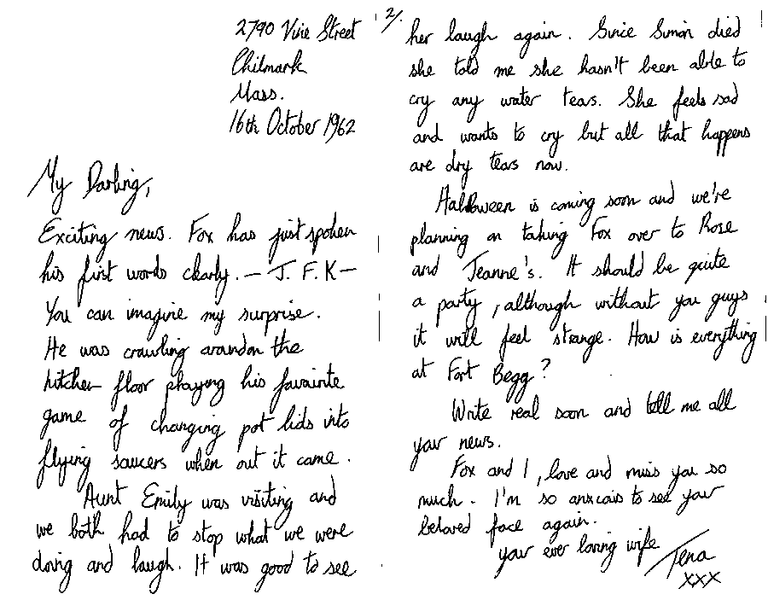 2790 Vixie Street
Chilmark
Mass.
16th October 1962
My Darling,
Exciting news. Fox has just spoken
his first words clearly. — J. F. K —
You can imagine my surprise.
He was crawling around on the
kitchen floor playing his favourite
game of changing pot lids into
flying saucers when out it came.
Aunt Emily was visiting and
we both had to stop what we were
doing and laugh. It was good to see
2/.
her laugh again. Since Simon died
she told me she hasn't been able to
cry any water tears. She feels sad
and wants to cry but all that happens
are dry tears now.
Halloween is coming soon and we're
planning on taking Fox over to Rose
and Jeanne's. It should be quite
a party, although without you guys
it will feel strange. How is everything
at Fort Begg?
Write real soon and tell me all
your news.
Fox and I, love and miss you so
much. I'm so anxious to see your
beloved face again.
your ever loving wife
Tena
xxx